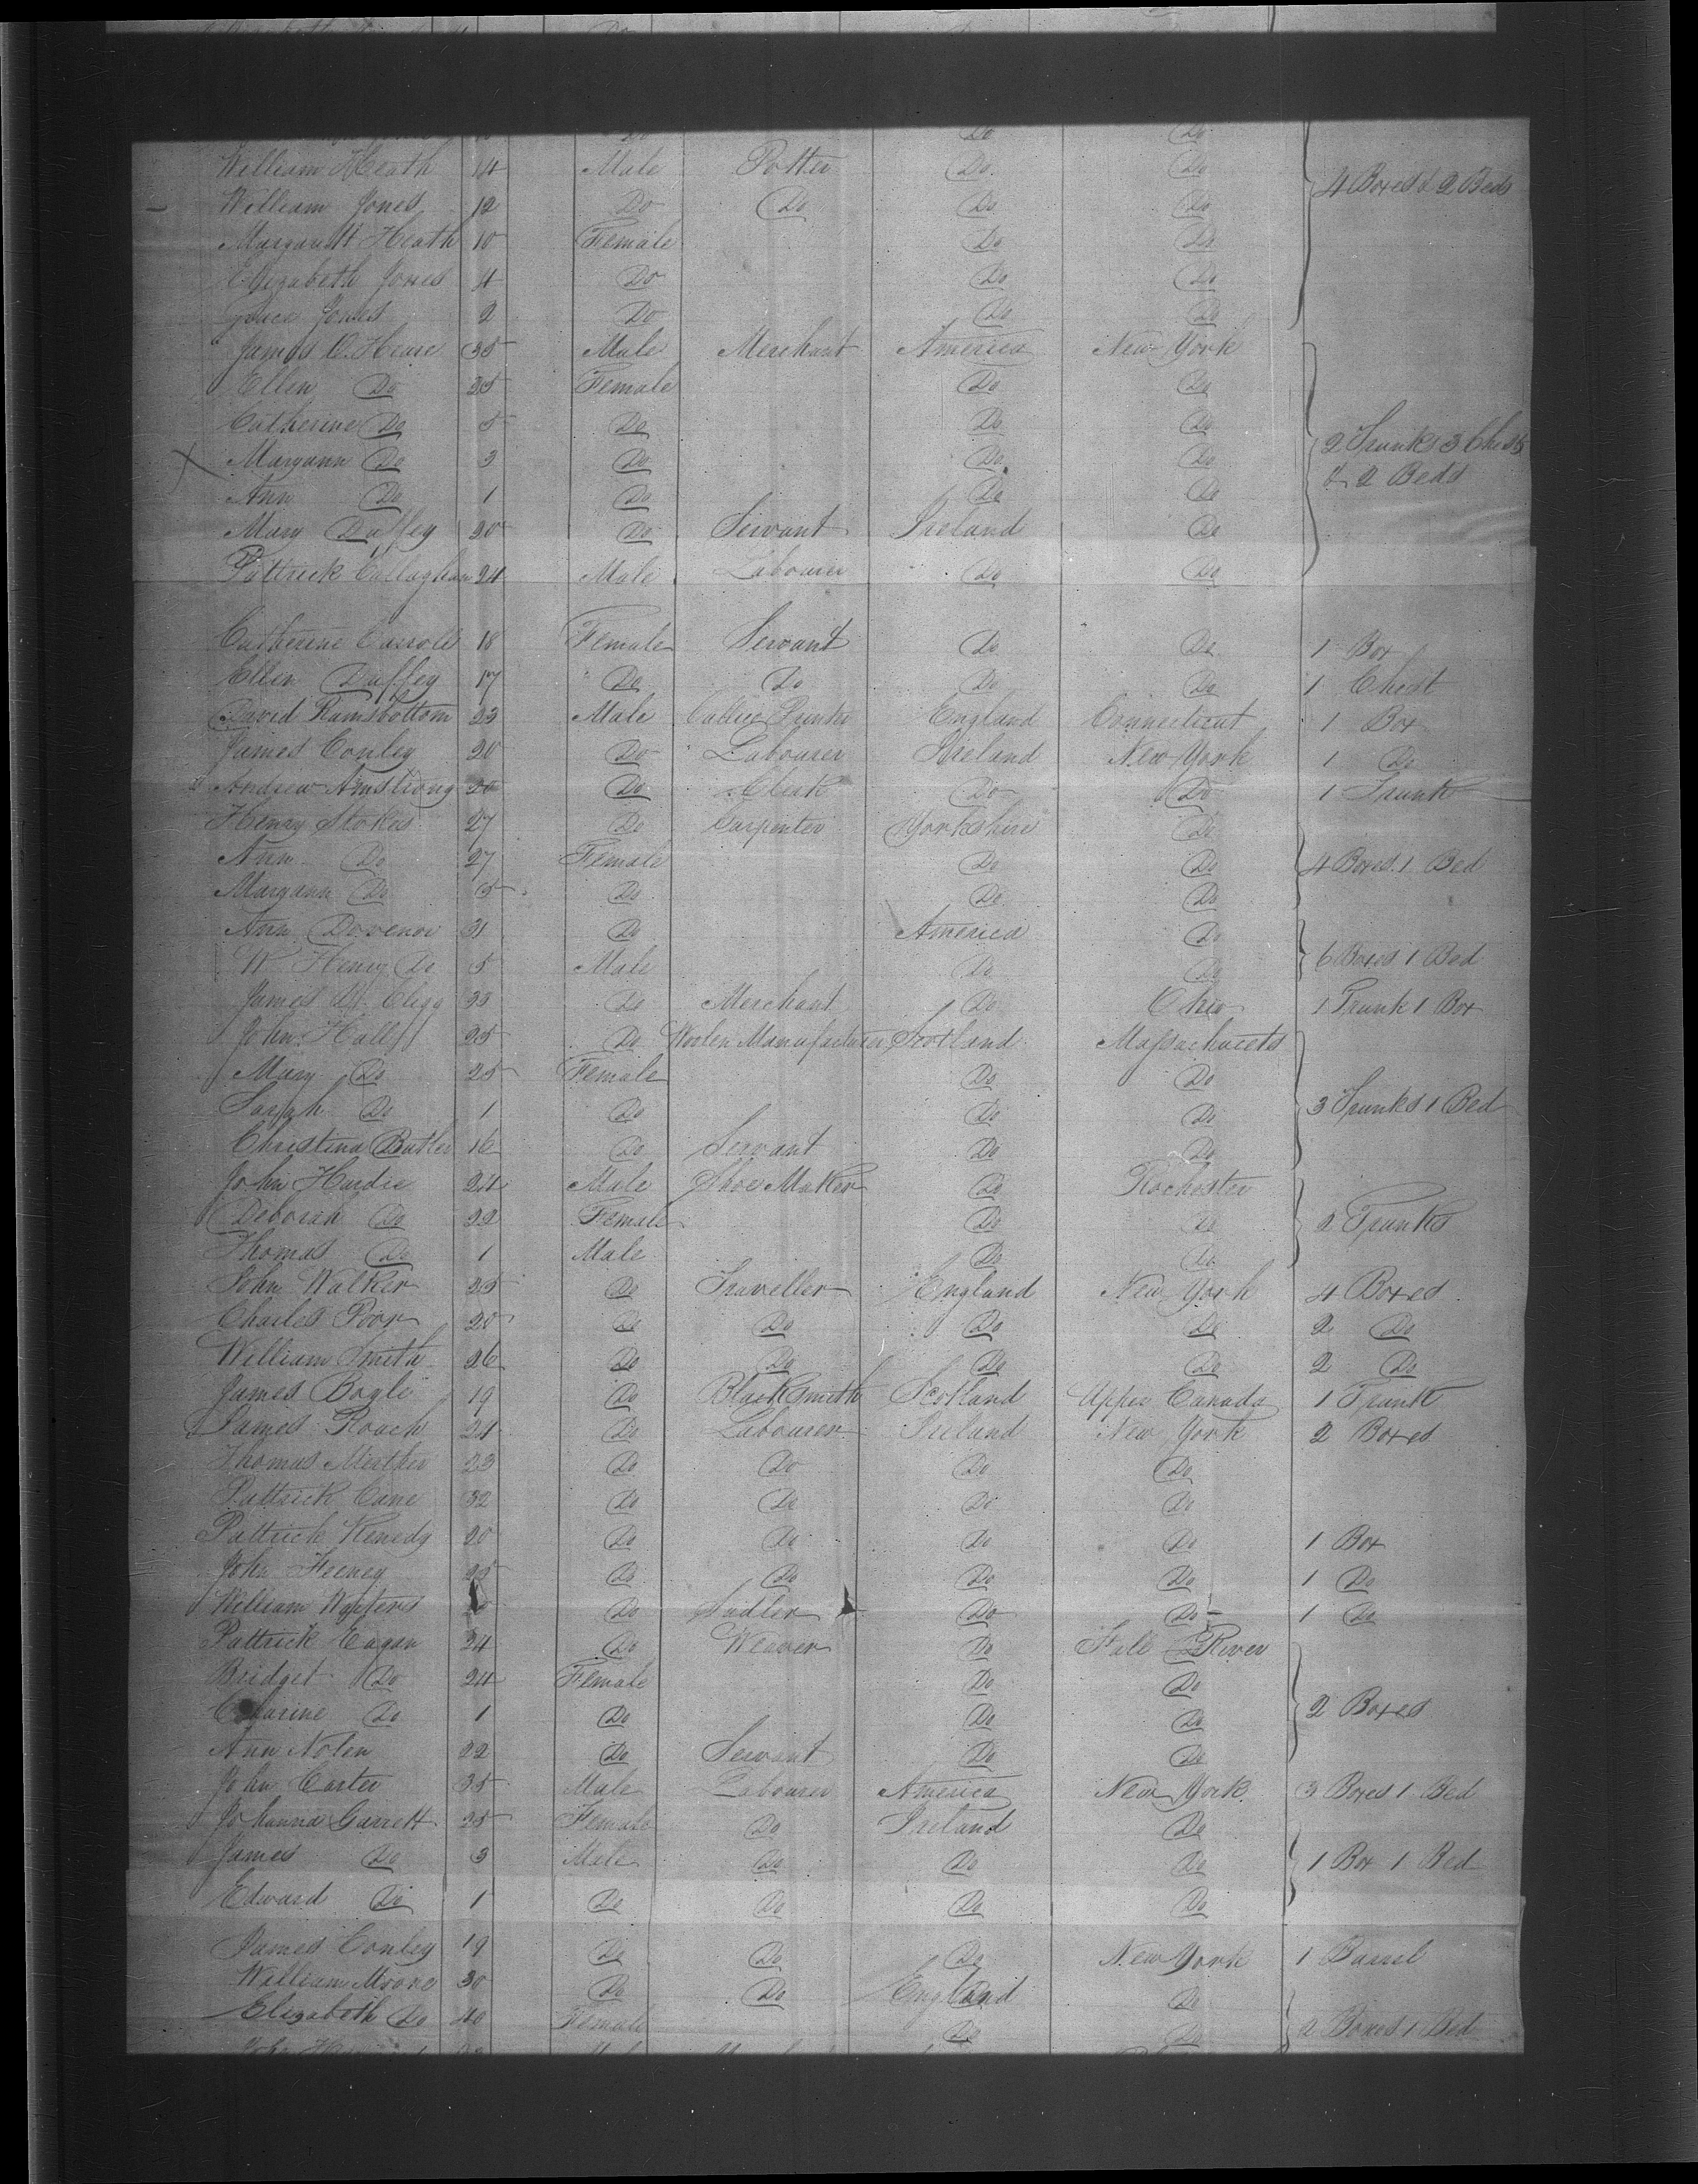 Do Do
William Heath 14 Male Potter Do Do 4 Boxes & 2 Beds
William Jones 12 Do Do Do Do
Margarett Heath 10 Female Do Do
Elizabeth Jones 4 Do Do Do
Jones 2 Do Do Do
James O. Heare 35 Male Merchant America New York
Ellen Do 25 Female Do Do
Catherine Do 5 Do Do Do
Maryann Do 3 Do Do Do 2 Trunks 3 Chests
Ann Do 1 Do Do Do & 2 Beds
Mary Duffey 20 Do Servant Ireland Do
Pattrick Callaghan 24 Male Labourer Do Do
Catherine Carroll 18 Female Servant Do Do 1 Box
Ellen Duffey 17 Do Do Do Do 1 Chest
David Ramsbottom 23 Male Callico Printer England Connecticut 1 Box
James Conley 20 Do Labourer Ireland New York 1 Do
Andrew Amstrong 20 Do Clerk Do Do 1 Trunk
Henry Stokes 27 Do Carpenter Yorkshire Do
Ann Do 27 Female Do Do 4 Boxes 1 Bed
Maryann Do 5 Do Do Do
Ann Dovenor 31 Do America Do
W Henry Do 5 Male Do Do 6 Boxes 1 Bed
James 33 Do Merchant Do Ohio 1 Trunk 1 Box
John Hall 25 Do Woolen Manufacturer Scotland Massachucets
Mary Do 25 Female Do Do
Sarah Do 1 Do Do Do 3 Trunks 1 Bed
Christina Butler 16 Do Servant Do Do
John Hardie 24 Male Shoe Maker Do Rochester
Deborah Do 22 Female Do Do 2 Trunks
Thomas Do 1 Male Do Do
John Walker 25 Do Traveller England New York 4 Boxes
Charles Poor 20 Do Do Do Do 2 Do
William Smith 26 Do Do Do Do 2 Do
James Bogle 19 Do Black Smith Scotland Upper Canada 1 Trunk
James Roach 21 Do Labourer Ireland New York 2 Boxes
Thomas 23 Do Do Do Do
Pattrick Cane 32 Do Do Do Do
Pattrick Kenedy 20 Do Do Do Do 1 Box
John Feeney 25 Do Do Do Do 1 Do
William Do Sadler Do Do 1 Do
Pattrick Eagan 24 Do Weaver Do Fall River
Bridget Do 24 Female Do Do
Do 1 Do Do Do 2 Boxes
Ann Nolen 22 Do Servant Do Do
John Carter 35 Male Labourer America New York 3 Boxes 1 Bed
Johanna Garrett 25 Female Do Ireland Do
James Do 3 Male Do Do Do 1 Box 1 Bed
Edward Do 1 Do Do Do Do
James Conley 19 Do Do Do New York 1 Barrel
William Moore 30 Do Do England Do
Elizabeth Do 40 Female Do Do 2 Boxes 1 Bed